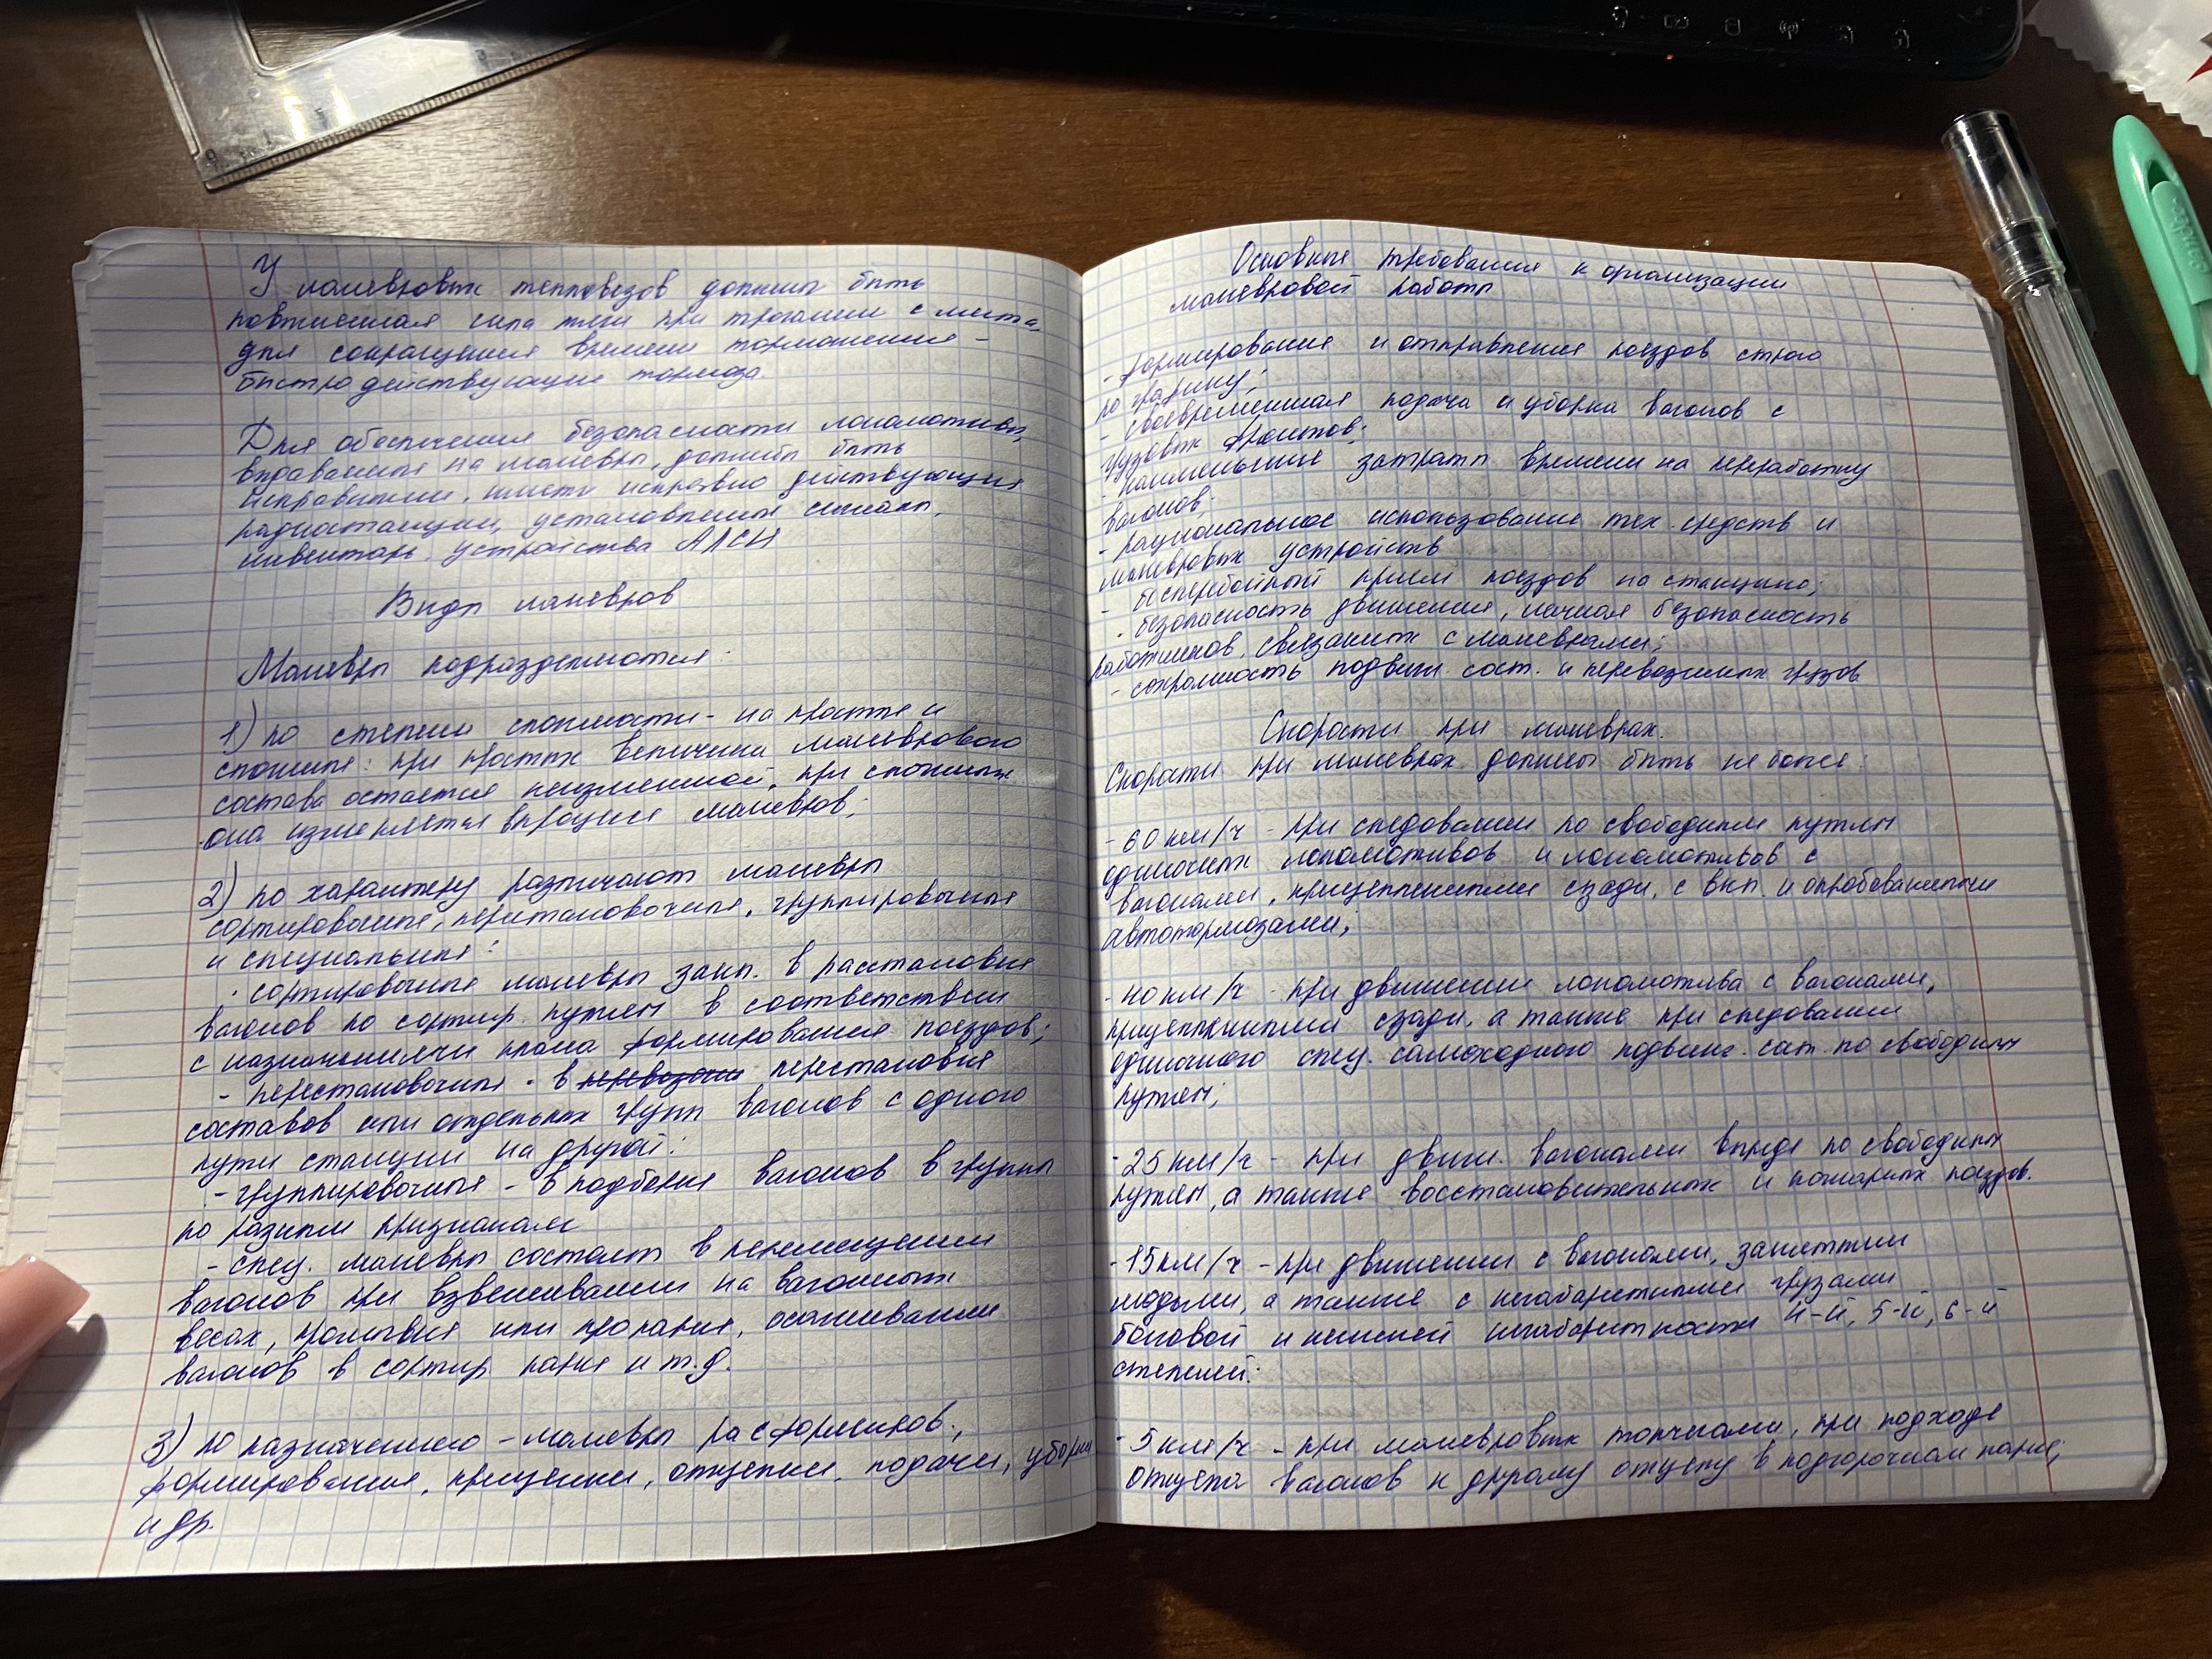 У маневровых тепловозов должны быть
повышенная сила тяги при трогании с места,
для сокращения времени торможения -
быстродействующие тормоза.
Для обеспечения безопасности локомотивы,
на маневры, должны быть
исправными, иметь исправно действующие
радиостанции, установленные сигналы,
инвентарь, устройства АЛСН
Виды маневров
Маневры подразделяются:
1) по степени сложности - на простые и
сложные: при простых величина маневрового
состава остается неизменной, при сложных
она изменяется в процессе маневров;
2) по характеру различают маневры
сортировочные, перестановочные, группировочные
и специальные:
· сортировочные маневры закл. в расстановке
вагонов по сортир. путям в соответствии
с назначениями плана формирования поездов;
- перестановочные - в перевозки перестановке
составов или отдельных групп вагонов с одного
пути станции на другой:
- группировочные - в подборке вагонов в группы
по разным признакам
- спец. маневры состоят в перемещении
вагонов при взвешивании на вагонных
весах, промывке или пропарке, осаживании
вагонов в сортир. парке и т.д.
3) по назначению - маневры расформиров.,
формирования, прицепки, отцепки, подачи, уборки
и др.
Основные требования к организации
маневровой работы
- формирование и отправление поездов строго
по графику;
- своевременная подача и уборка вагонов с
грузовых фронтов;
- наименьшие затраты времени на переработку
вагонов;
- рациональное использование тех. средств и
маневровых устройств
- бесперебойный прием поездов на станцию;
- безопасность движения, личная безопасность
работников, связанных с маневрами;
- сохранность подвиж. сост. и перевозимых грузов
Скорости при маневрах.
Скорости при маневрах должны быть не более:
- 60 км/ч - при следовании по свободным путям
одиночных локомотивов и локомотивов с
вагонами, прицепленными сзади, с вкл. и опробованными
автотормозами;
- 40 км/ч - при движении локомотива с вагонами,
прицепленными сзади, а также при следовании
одиночного спец. самоходного подвиж. сост. по свободным
путям;
- 25 км/ч - при движ. вагонами вперед по свободным
путям, а также восстановительных и пожарных поездов.
- 15 км/ч - при движении с вагонами, занятыми
людьми, а также с негабаритными грузами
боковой и нижней негабаритности 4-й, 5-й, 6-й
степеней:
- 5 км/ч - при маневровых толчками, при подходе
отцепа вагонов к другому отцепу в подгорочном парке;